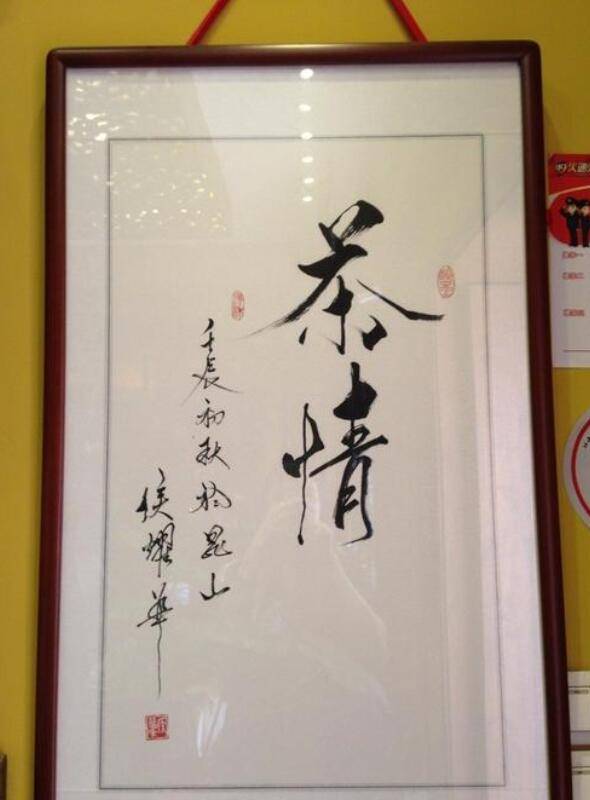 茶情
壬辰初秋於昆山
侯耀華